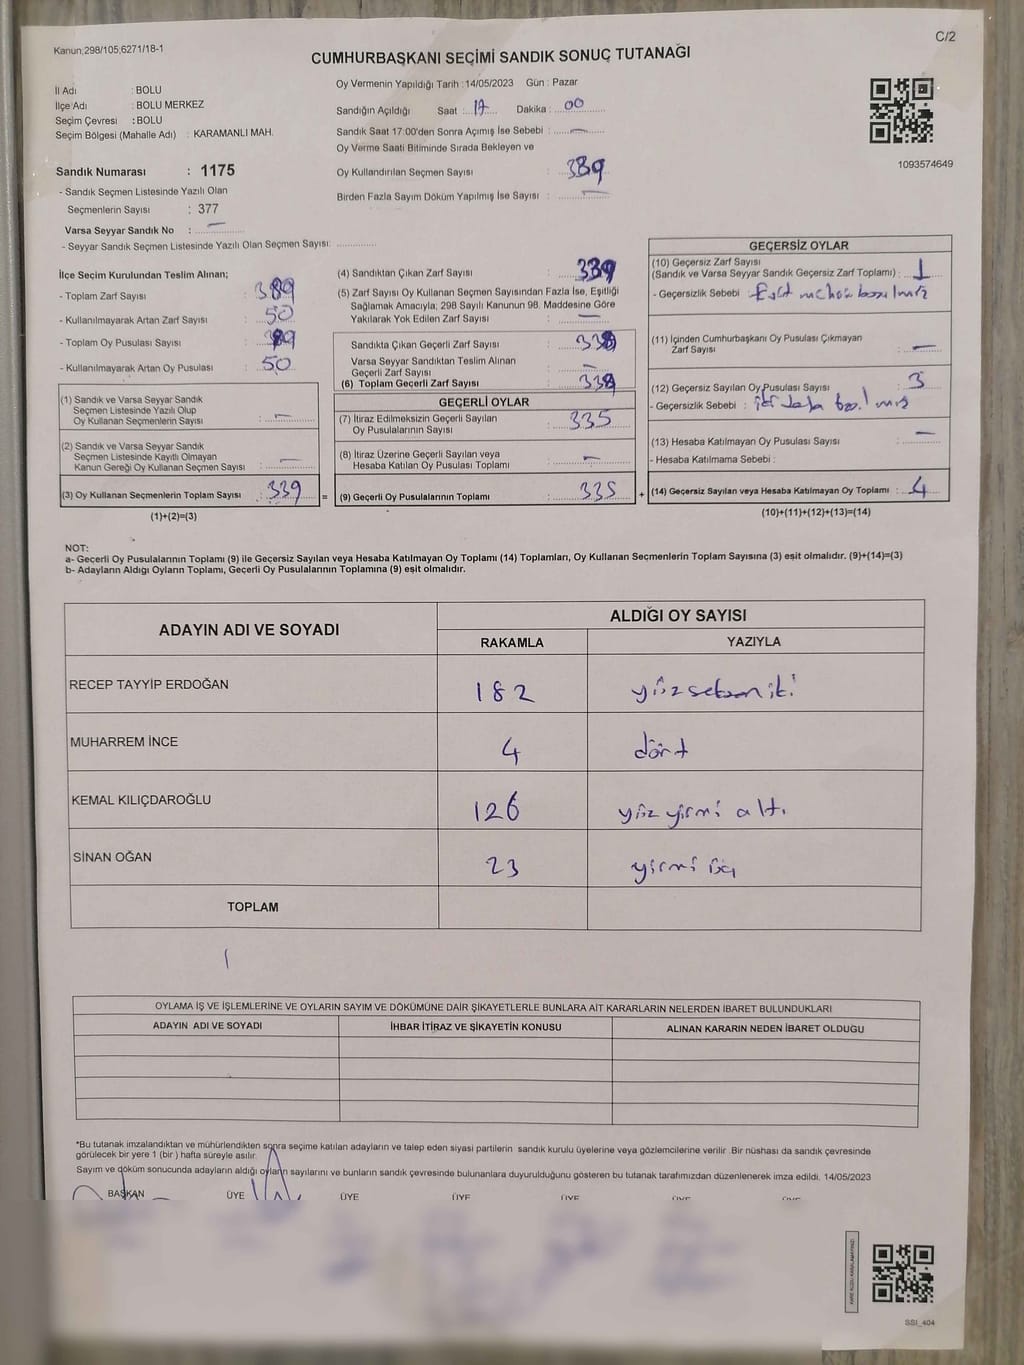 Kanun;298/105,6271/18-1
C/2
CUMHURBAŞKANI SEÇİMİ SANDIK SONUÇ TUTANAĞI
İl Adı : BOLU
İlçe Adı : BOLU MERKEZ
Seçim Çevresi : BOLU
Seçim Bölgesi (Mahalle Adı) : KARAMANLI MAH.
Oy Vermenin Yapıldığı Tarih : 14/05/2023 Gün : Pazar
Sandığın Açıldığı Saat : 17 Dakika : 00
Sandık Saat 17:00'den Sonra Açılmış İse Sebebi : —
Oy Verme Saati Bitiminde Sırada Bekleyen ve
Oy Kullandırılan Seçmen Sayısı : 339
Birden Fazla Sayım Döküm Yapılmış İse Sayısı : —
1093574649
Sandık Numarası : 1175
- Sandık Seçmen Listesinde Yazılı Olan
Seçmenlerin Sayısı : 377
Varsa Seyyar Sandık No : —
- Seyyar Sandık Seçmen Listesinde Yazılı Olan Seçmen Sayısı:
İlçe Seçim Kurulundan Teslim Alınan;
- Toplam Zarf Sayısı : 389
- Kullanılmayarak Artan Zarf Sayısı : 50
- Toplam Oy Pusulası Sayısı : 389
- Kullanılmayarak Artan Oy Pusulası : 50
(1) Sandık ve Varsa Seyyar Sandık
Seçmen Listesinde Yazılı Olup
Oy Kullanan Seçmenlerin Sayısı : —
(2) Sandık ve Varsa Seyyar Sandık
Seçmen Listesinde Kayıtlı Olmayan
Kanun Gereği Oy Kullanan Seçmen Sayısı : —
(3) Oy Kullanan Seçmenlerin Toplam Sayısı : 339 =
(1)+(2)=(3)
(4) Sandıktan Çıkan Zarf Sayısı : 339
(5) Zarf Sayısı Oy Kullanan Seçmen Sayısından Fazla İse, Eşitliği
Sağlamak Amacıyla; 298 Sayılı Kanunun 98. Maddesine Göre
Yakılarak Yok Edilen Zarf Sayısı : —
Sandıkta Çıkan Geçerli Zarf Sayısı : 338
Varsa Seyyar Sandıktan Teslim Alınan
Geçerli Zarf Sayısı : —
(6) Toplam Geçerli Zarf Sayısı : 338
GEÇERLİ OYLAR
(7) İtiraz Edilmeksizin Geçerli Sayılan
Oy Pusulalarının Sayısı : 335
(8) İtiraz Üzerine Geçerli Sayılan veya
Hesaba Katılan Oy Pusulası Toplamı : —
(9) Geçerli Oy Pusulalarının Toplamı : 335 +
GEÇERSİZ OYLAR
(10) Geçersiz Zarf Sayısı
(Sandık ve Varsa Seyyar Sandık Geçersiz Zarf Toplamı) : 1
- Geçersizlik Sebebi :
(11) İçinden Cumhurbaşkanı Oy Pusulası Çıkmayan
Zarf Sayısı : —
(12) Geçersiz Sayılan Oy Pusulası Sayısı : 3
- Geçersizlik Sebebi : iki defa basılmış
(13) Hesaba Katılmayan Oy Pusulası Sayısı : —
- Hesaba Katılmama Sebebi :
(14) Geçersiz Sayılan veya Hesaba Katılmayan Oy Toplamı : 4
(10)+(11)+(12)+(13)=(14)
NOT:
a- Geçerli Oy Pusulalarının Toplamı (9) ile Geçersiz Sayılan veya Hesaba Katılmayan Oy Toplamı (14) Toplamları, Oy Kullanan Seçmenlerin Toplam Sayısına (3) eşit olmalıdır. (9)+(14)=(3)
b- Adayların Aldığı Oyların Toplamı, Geçerli Oy Pusulalarının Toplamına (9) eşit olmalıdır.
ADAYIN ADI VE SOYADI
ALDIĞI OY SAYISI
RAKAMLA YAZIYLA
RECEP TAYYİP ERDOĞAN 182 yüzseksen iki
MUHARREM İNCE 4 dört
KEMAL KILIÇDAROĞLU 126 yüz yirmi altı
SİNAN OĞAN 23 yirmi üç
TOPLAM
OYLAMA İŞ VE İŞLEMLERİNE VE OYLARIN SAYIM VE DÖKÜMÜNE DAİR ŞİKAYETLERLE BUNLARA AİT KARARLARIN NELERDEN İBARET BULUNDUKLARI
ADAYIN ADI VE SOYADI İHBAR İTİRAZ VE ŞİKAYETİN KONUSU ALINAN KARARIN NEDEN İBARET OLDUĞU
*Bu tutanak imzalandıktan ve mühürlendikten sonra seçime katılan adayların ve talep eden siyasi partilerin sandık kurulu üyelerine veya gözlemcilerine verilir. Bir nüshası da sandık çevresinde
görülecek bir yere 1 (bir) hafta süreyle asılır.
Sayım ve döküm sonucunda adayların aldığı oyların sayılarını ve bunların sandık çevresinde bulunanlara duyurulduğunu gösteren bu tutanak tarafımızdan düzenlenerek imza edildi. 14/05/2023
BAŞKAN ÜYE ÜYE ÜYE ÜYE ÜYE ÜYE
SSI_404